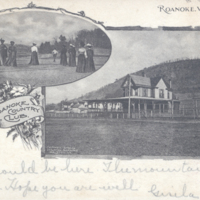 ROANOKE, V
ROANOKE COUNTRY CLUB
ould be here The mountai
Hope you are well